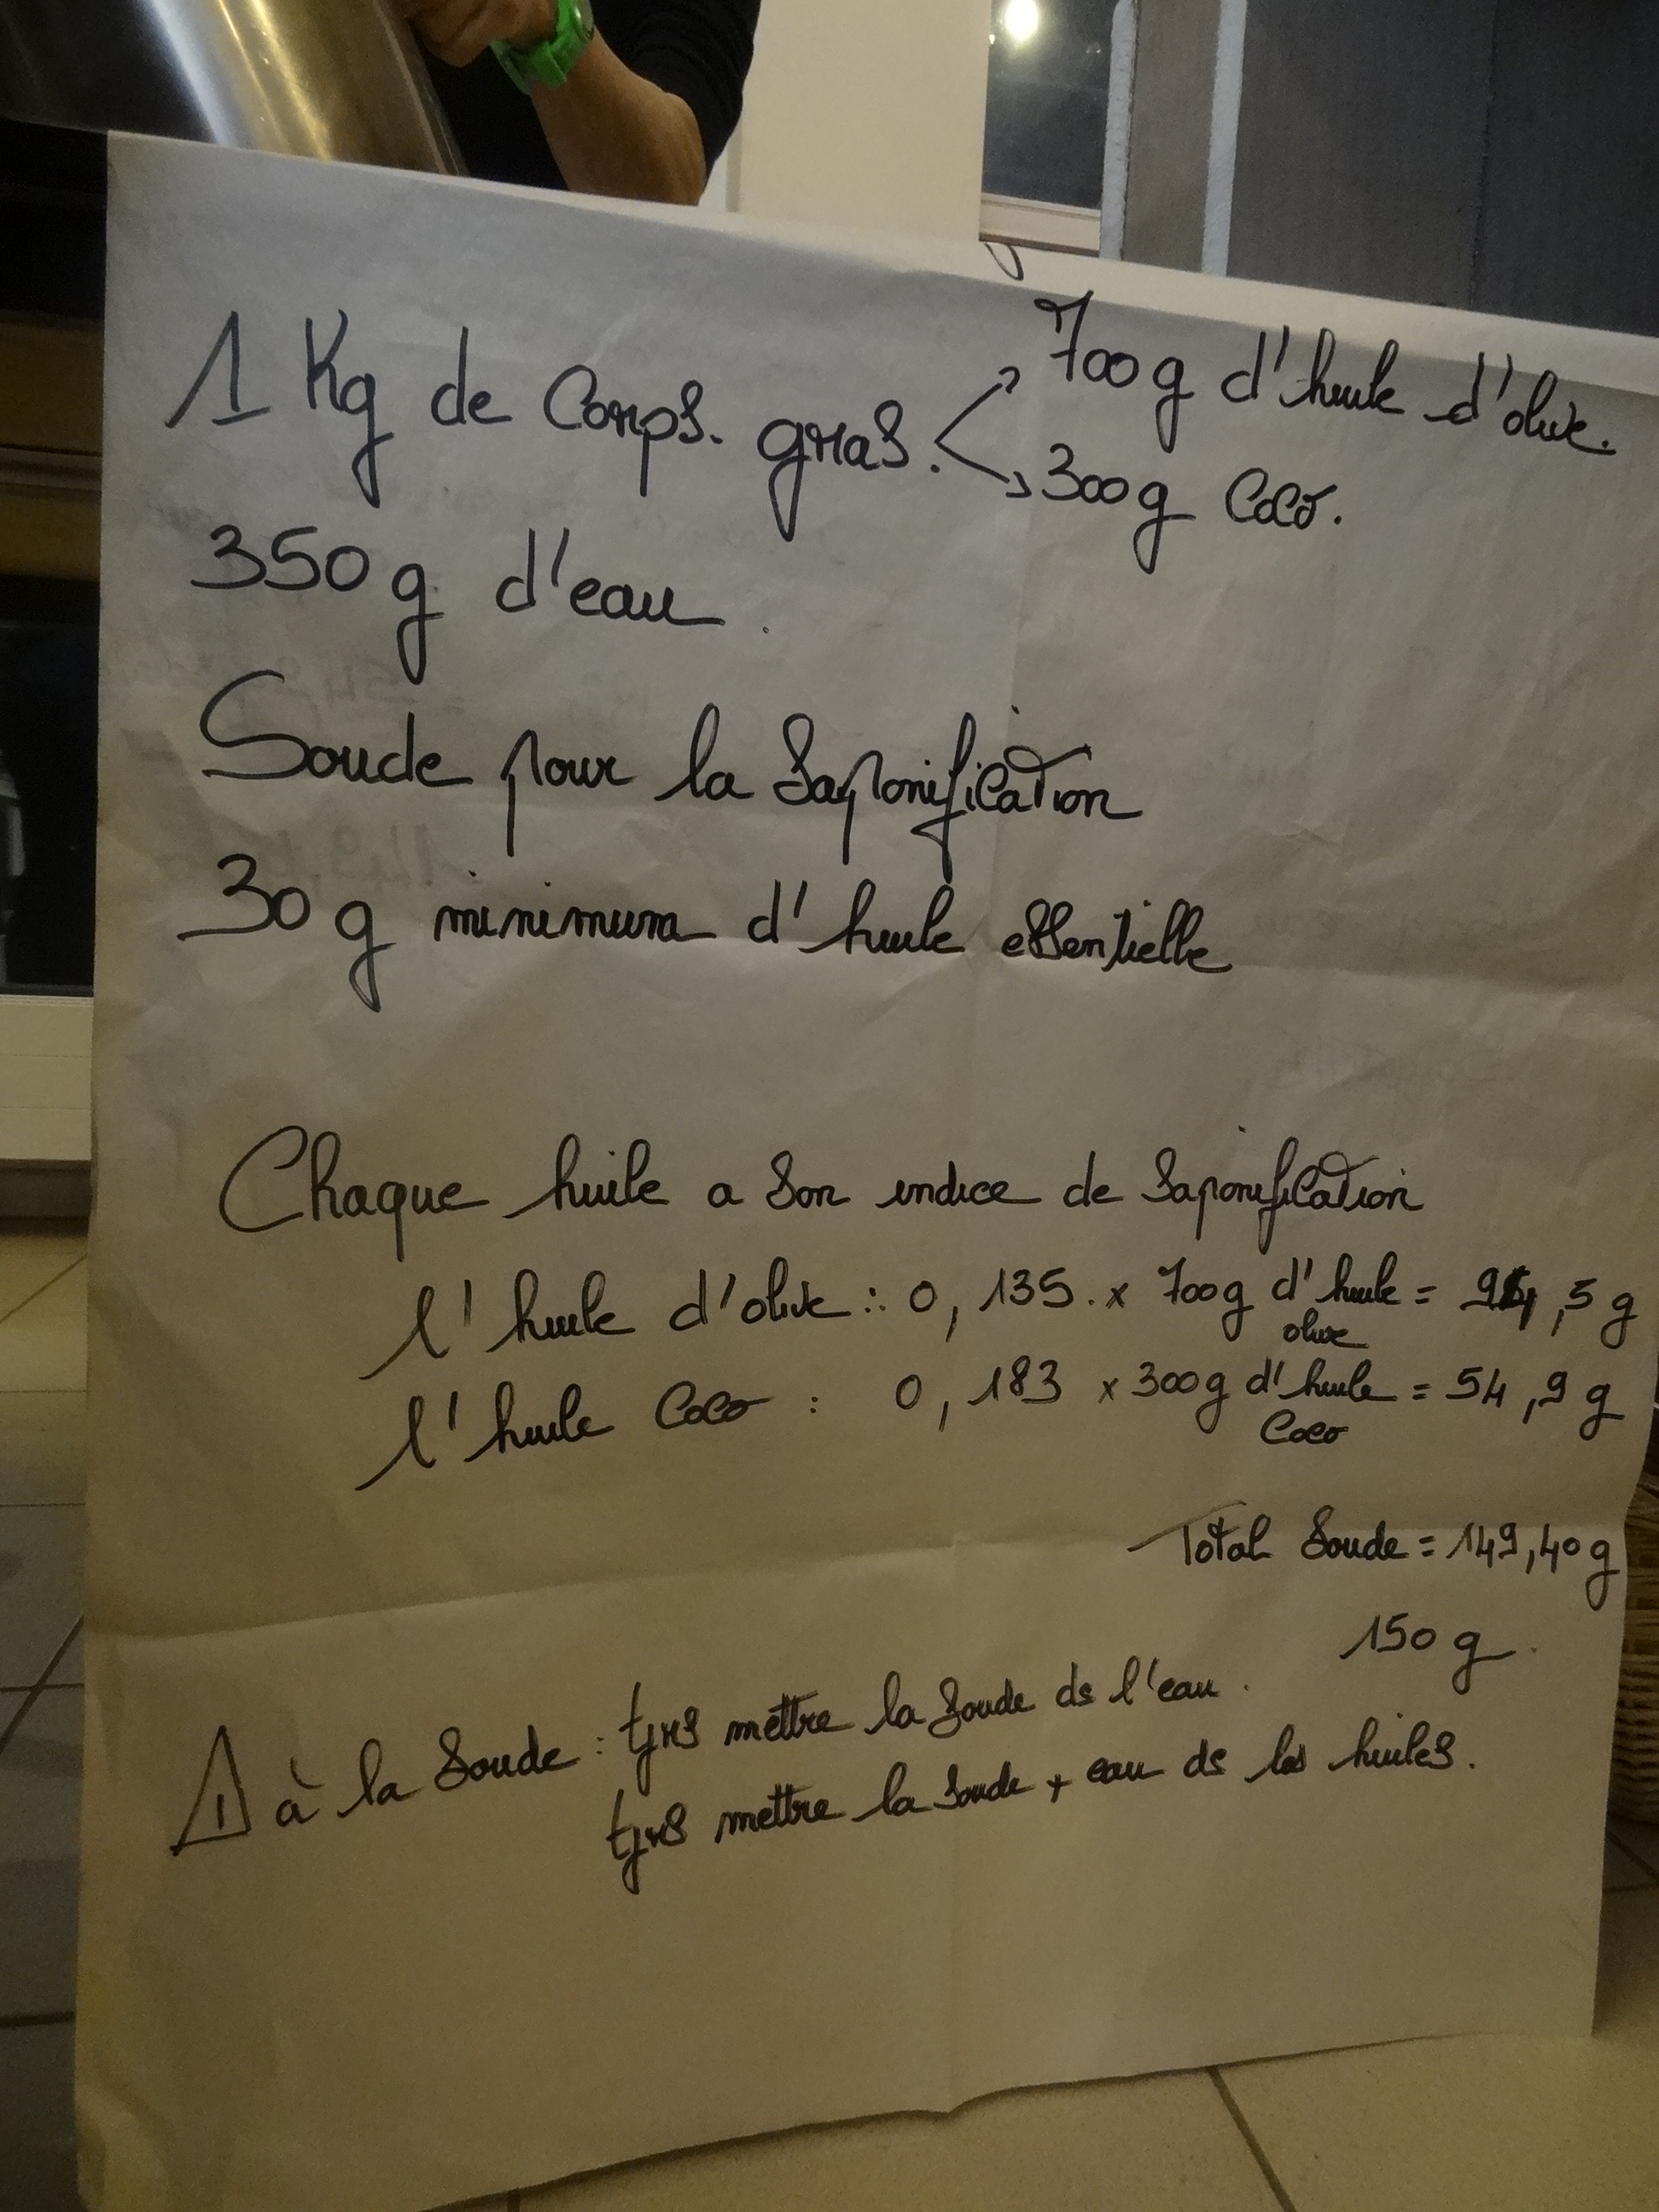 1 Kg de Corps. gras. 700g d'huile d'olive.
300g Coco.
350g d'eau.
Soude pour la Saponification
30g minimum d'huile essentielle
Chaque huile a son indice de Saponification
l'huile d'olive : 0,135. x 700g d'huile olive = 94,5g
l'huile Coco : 0,183 x 300g d'huile Coco = 54,9g
Total Soude = 149,40g
150g.
⚠ à la Soude : tjrs mettre la Soude ds l'eau.
tjrs mettre la Soude + eau ds les huiles.